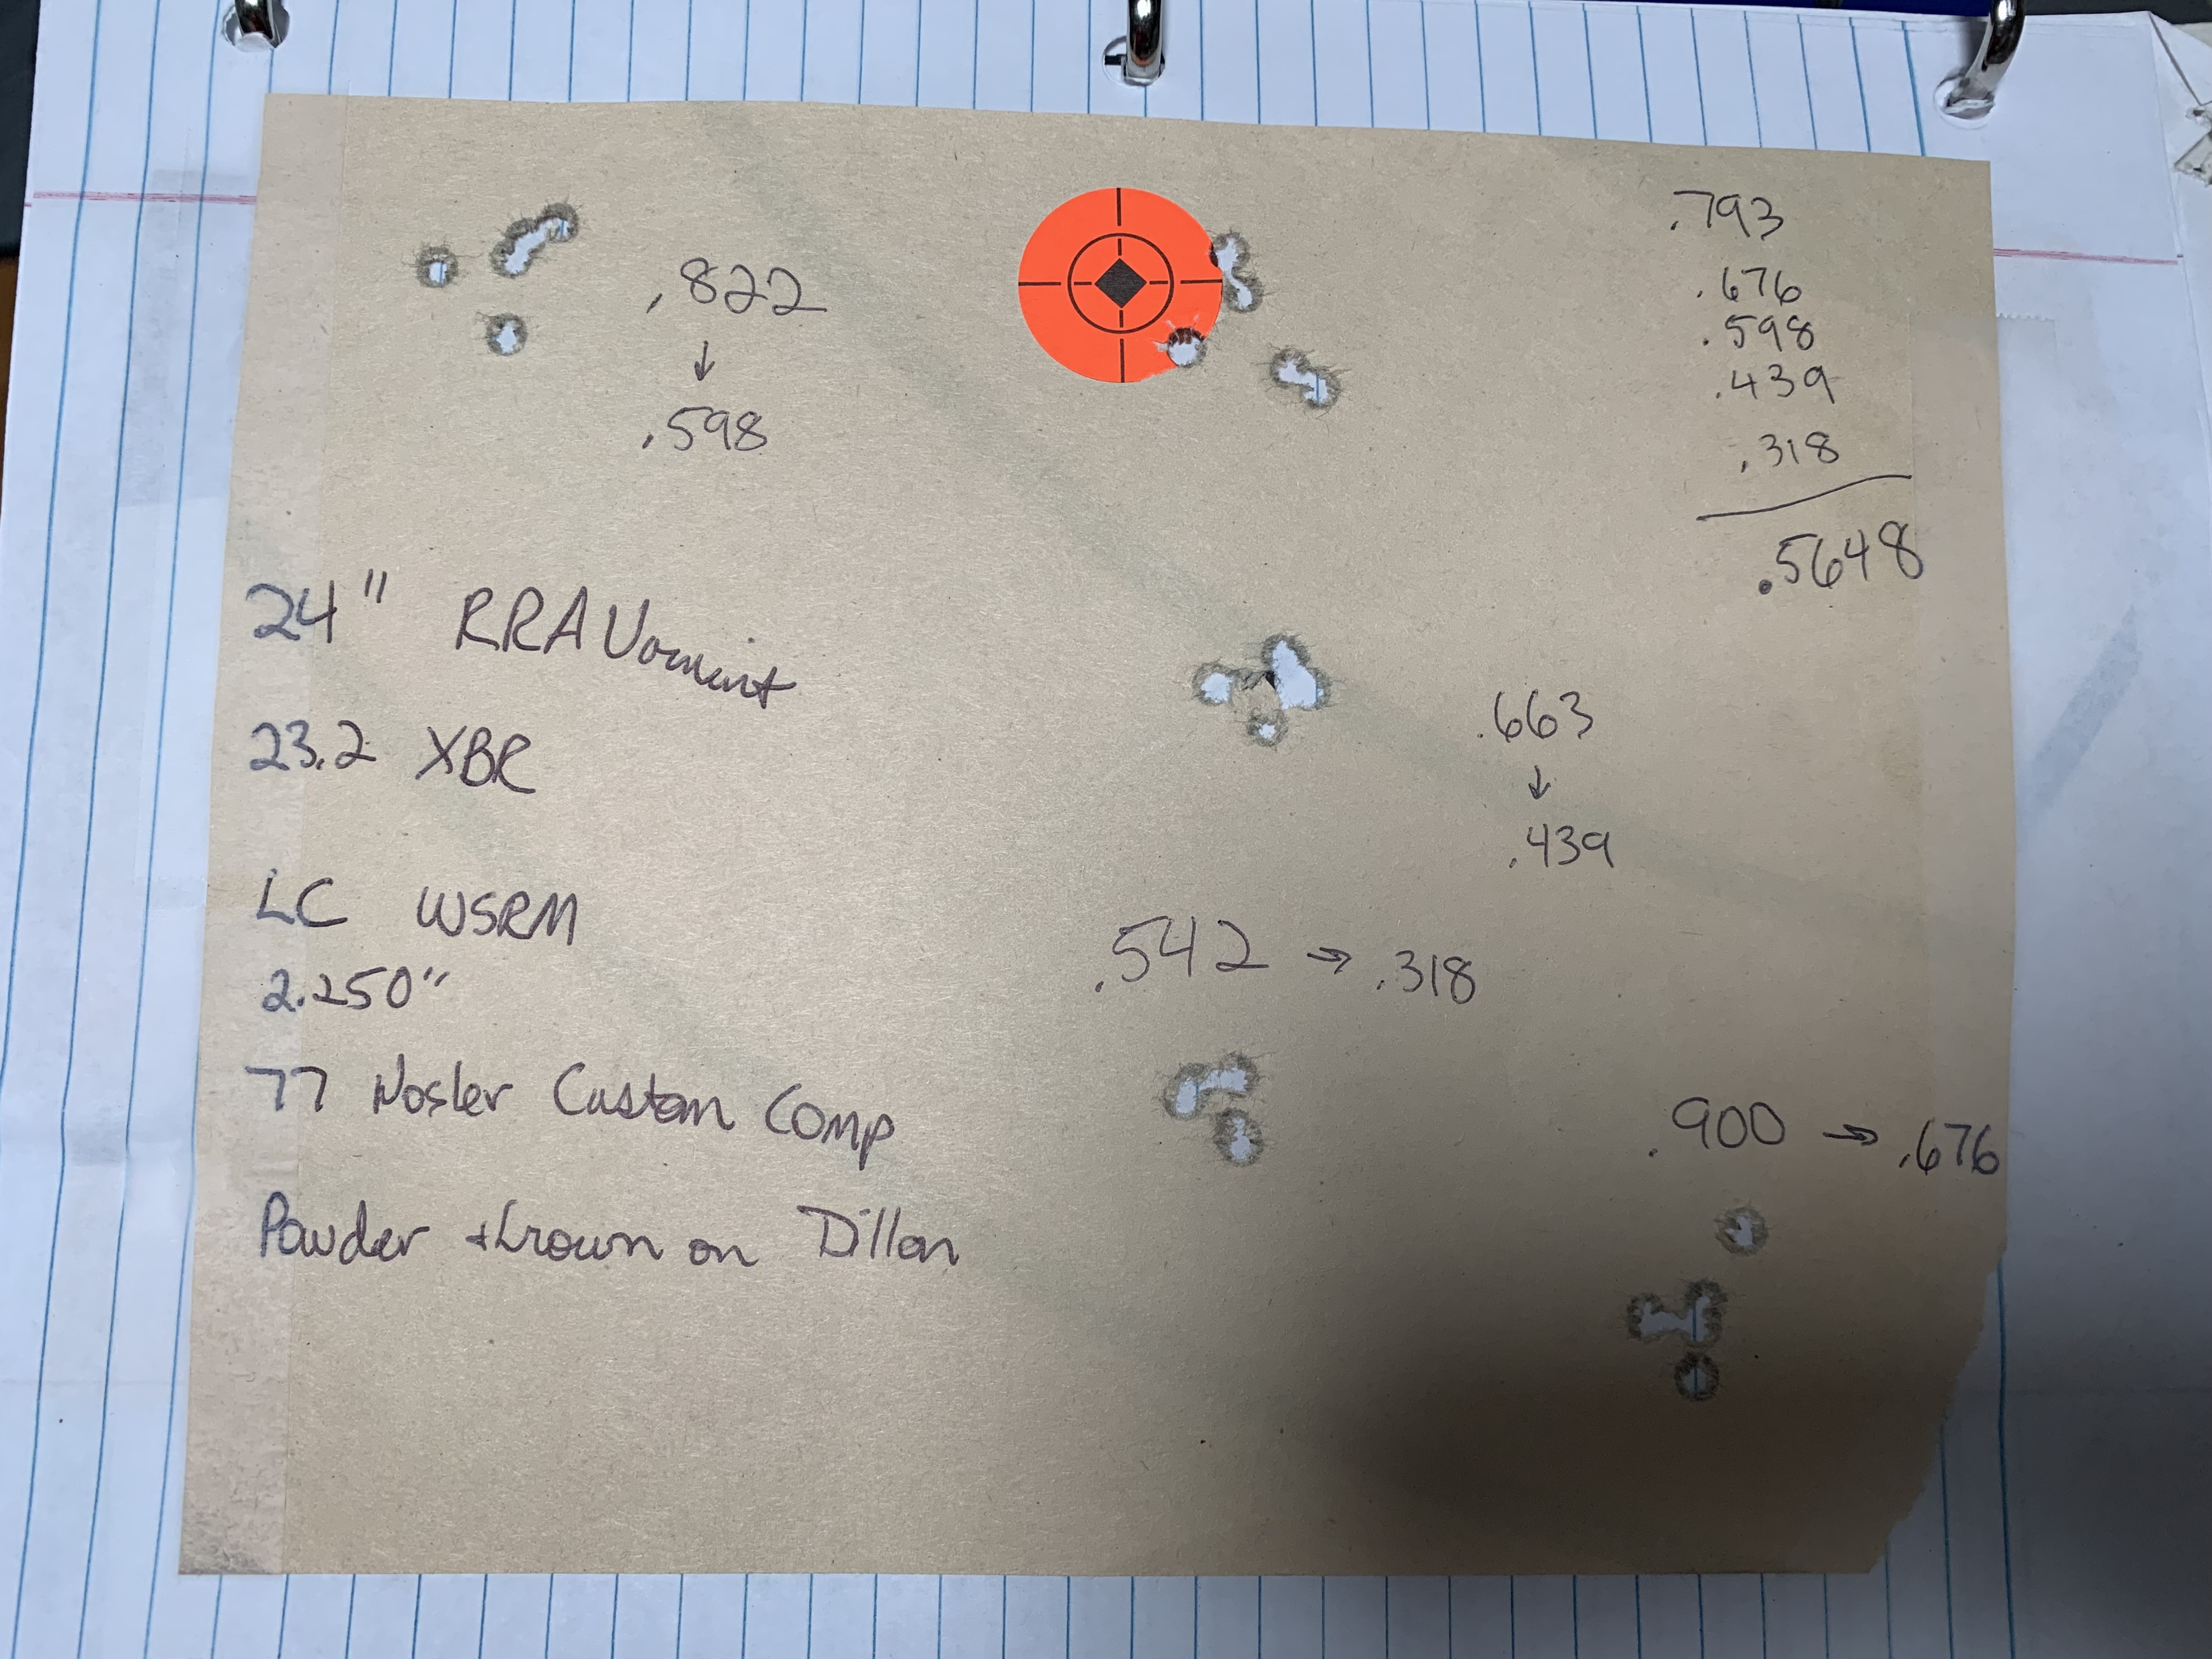 .793
.676
.598
.439
.318
.5648
.822
↓
.598
24" RRA Varmint
23.2 XBR
LC WSRM
2.250"
77 Nosler Custom Comp
Powder thrown on Dillon
.663
↓
.439
.542 → .318
.900 → .676